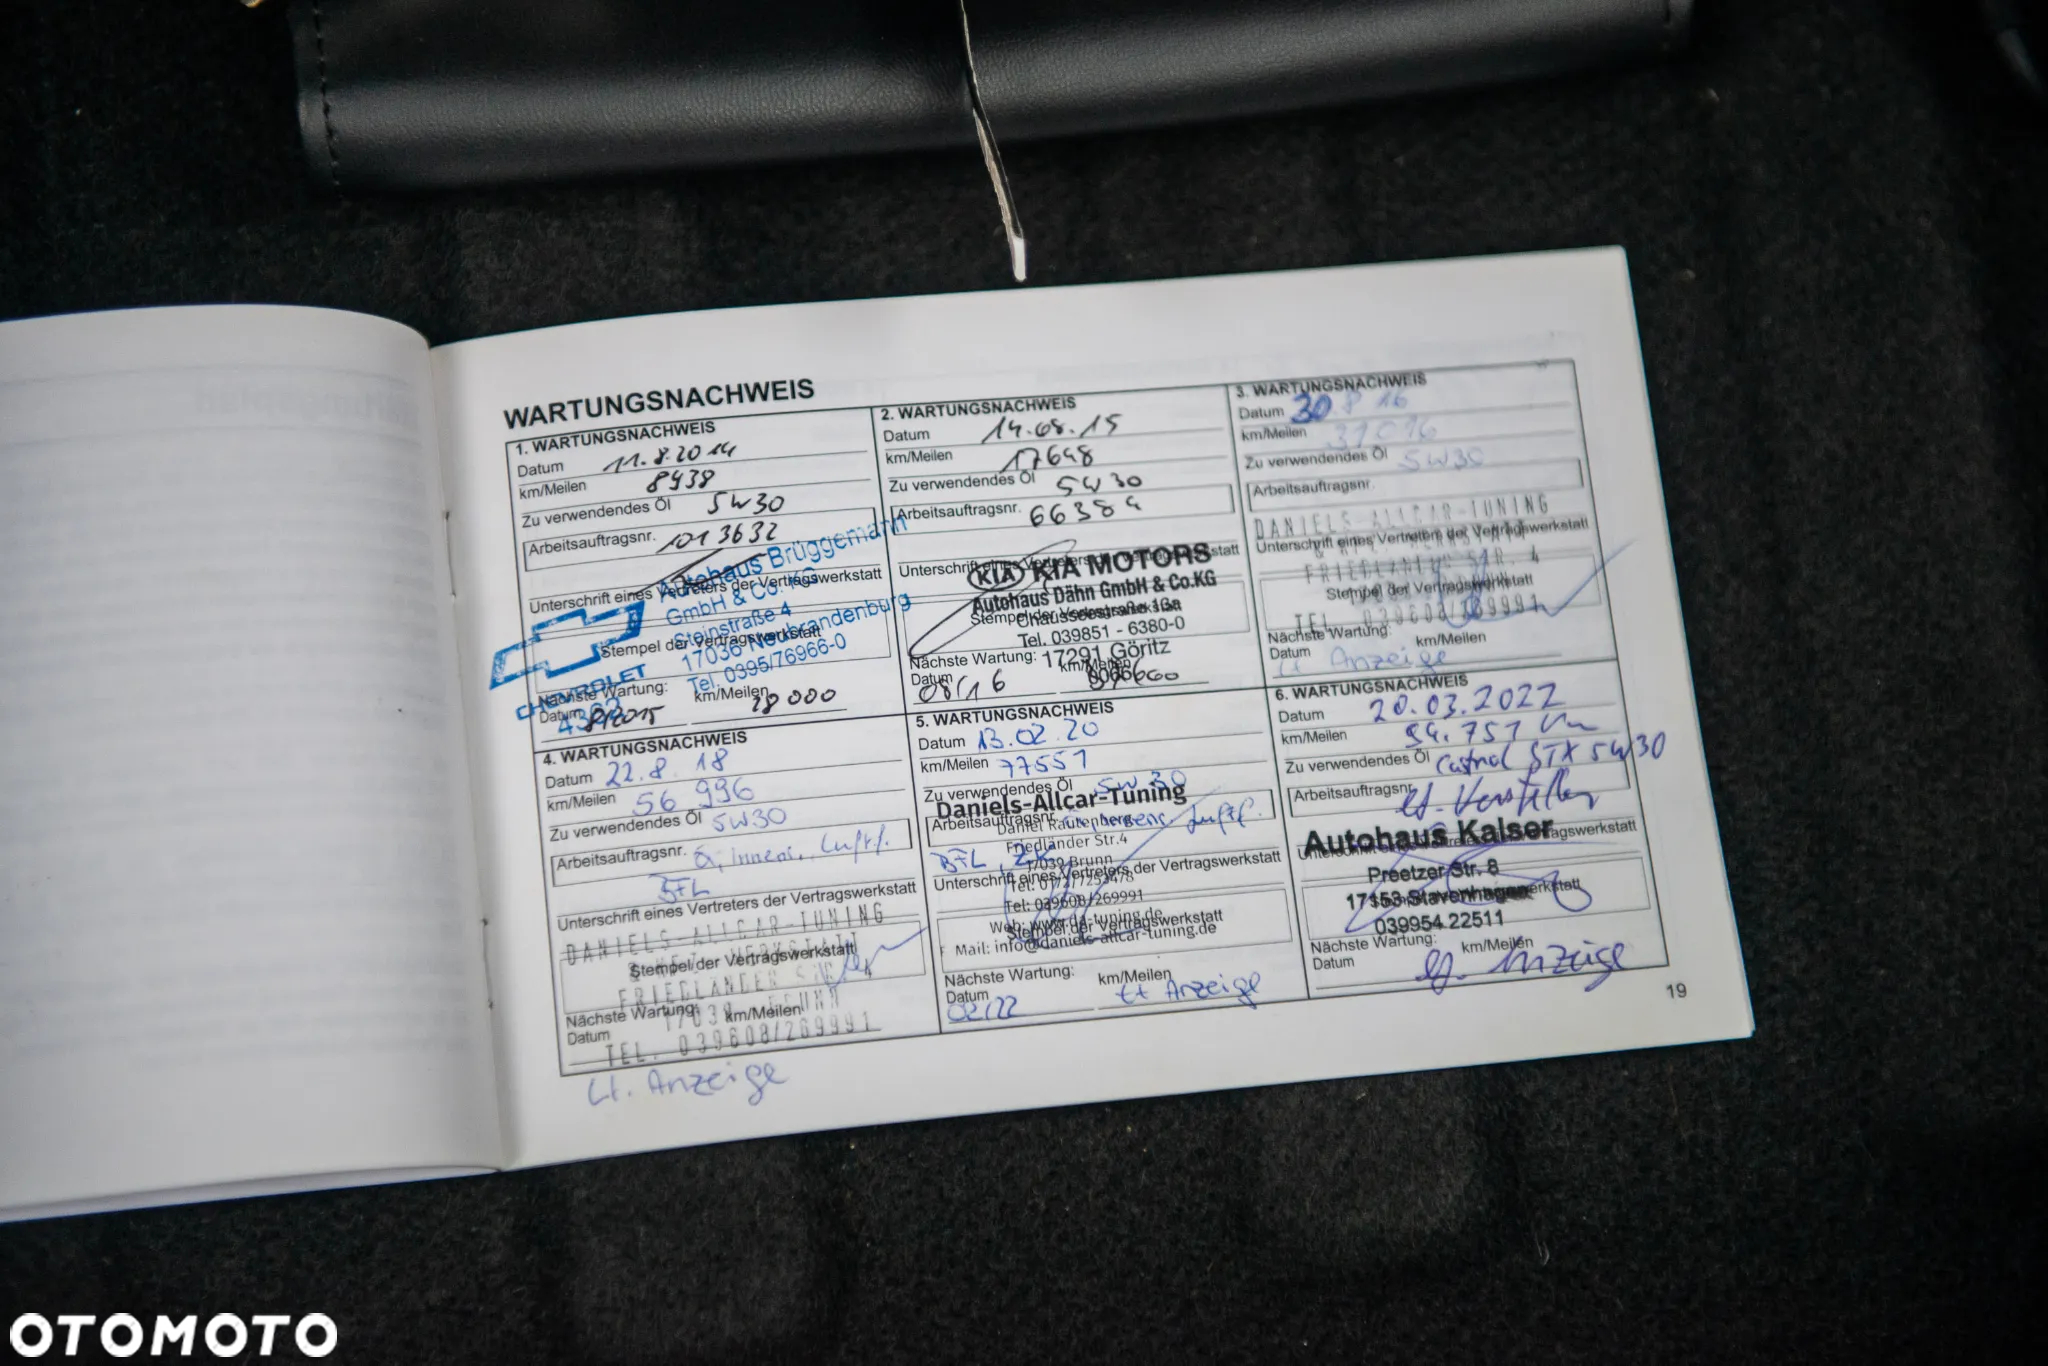 WARTUNGSNACHWEIS
1. WARTUNGSNACHWEIS
Datum 11.8.2014
km/Meilen 8438
Zu verwendendes Öl 5W30
Arbeitsauftragsnr. 1013632
Autohaus Brüggemann
Unterschrift eines Vertreters der Vertragswerkstatt
GmbH & Co.KG
Steinstraße 4
Stempel der Vertragswerkstatt
17036 Neubrandenburg
Tel. 0395/76966-0
CHEVROLET
Nächste Wartung:
Datum
km/Meilen 28000
2. WARTUNGSNACHWEIS
Datum 14.08.15
km/Meilen 17648
Zu verwendendes Öl 5W30
Arbeitsauftragsnr. 66384
Unterschrift eines Vertreters der Vertragswerkstatt
KIA KIA MOTORS
Autohaus Dähn GmbH & Co.KG
Stempel der Vertragswerkstatt
Tel. 039851 - 6380-0
17291 Göritz
Nächste Wartung:
Datum 08/16
km/Meilen
3. WARTUNGSNACHWEIS
Datum 30 8 16
km/Meilen 31016
Zu verwendendes Öl 5W30
Arbeitsauftragsnr.
DANIELS-ALLCAR-TUNING
Unterschrift eines Vertreters der Vertragswerkstatt
Stempel der Vertragswerkstatt
TEL. 039608/269991
Nächste Wartung:
Datum Lt Anzeige
km/Meilen
4. WARTUNGSNACHWEIS
Datum 22.8.18
km/Meilen 56 996
Zu verwendendes Öl 5W30
Arbeitsauftragsnr. Ö, Innenr., Luftf.
BFL
Unterschrift eines Vertreters der Vertragswerkstatt
DANIELS-ALLCAR-TUNING
Stempel der Vertragswerkstatt
Nächste Wartung:
Datum
km/Meilen
TEL. 039608/269991
Lt. Anzeige
5. WARTUNGSNACHWEIS
Datum 13.02.20
km/Meilen 77551
Zu verwendendes Öl 5W 30
Daniels-Allcar-Tuning
Arbeitsauftragsnr. Luftf.
Daniel Rautenberg
Friedländer Str.4
BFL,
17039 Brunn
Unterschrift eines Vertreters der Vertragswerkstatt
Tel: 039608/269991
Web: www.da-tuning.de
Stempel der Vertragswerkstatt
Mail: info@daniels-allcar-tuning.de
Nächste Wartung:
Datum 02/22
km/Meilen Lt Anzeige
6. WARTUNGSNACHWEIS
Datum 20.03.2022
km/Meilen 94.751 km
Zu verwendendes Öl Castrol STX 5W30
Arbeitsauftragsnr. lt. Hersteller
Autohaus Kalser
Unterschrift eines Vertreters der Vertragswerkstatt
Preetzer Str. 8
17153 Stavenhagen
039954 22511
Nächste Wartung:
Datum
km/Meilen lt. Anzeige
19
OTOMOTO